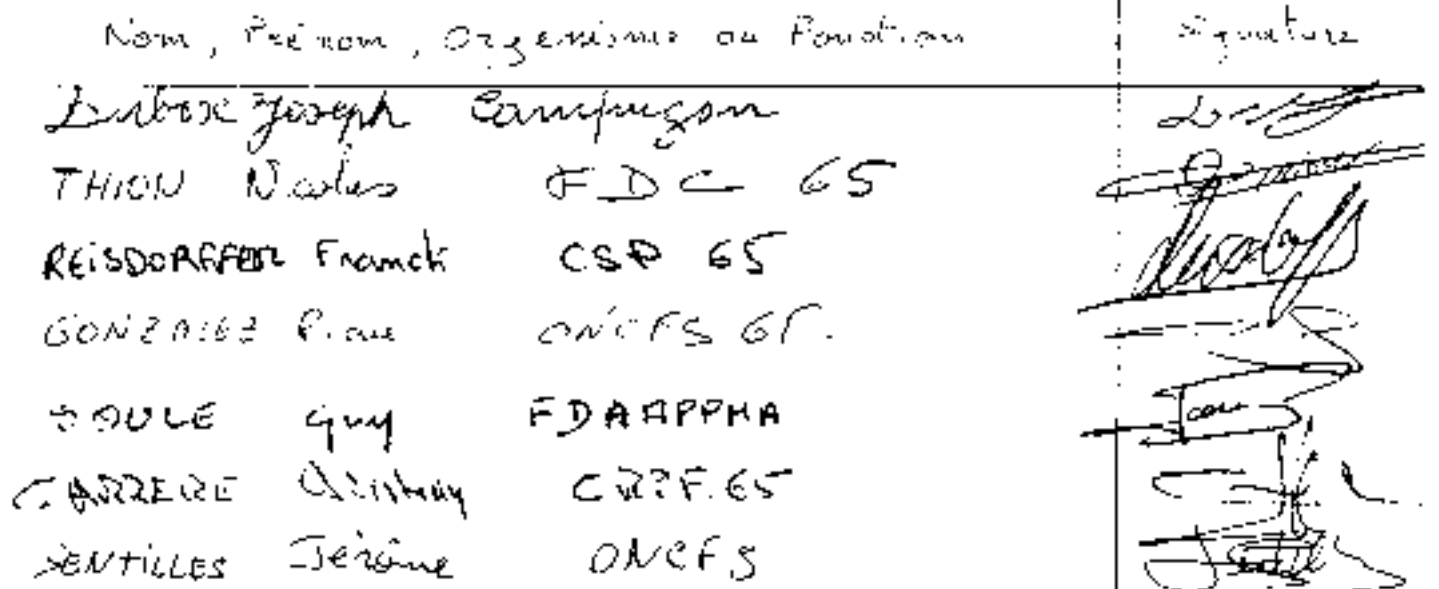 Nom, Prénom, Organisme ou Fonction Signature
Joseph Campuzan
THION Nicolas FDC 65
REISDORFFER Franck CSP 65
GONZALEZ Pierre ONCFS 65.
SOULE Guy FDAAPPMA
CARRERE CRPF.65
SENTILLES Jérôme ONCFS